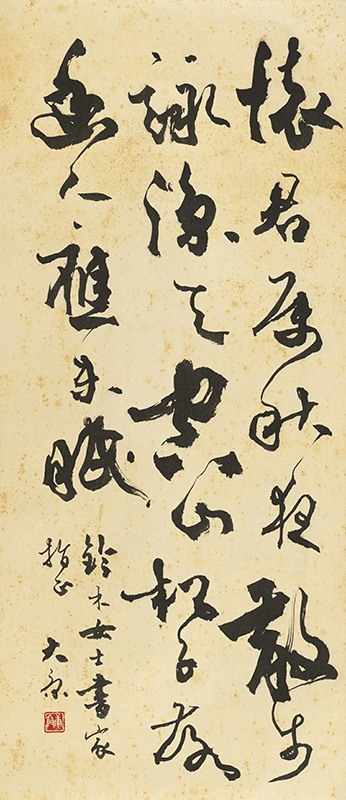 懐君属秋夜散步
詠涼天空山松子落
幽人應未眠
鈴木女士書家
指正
大康